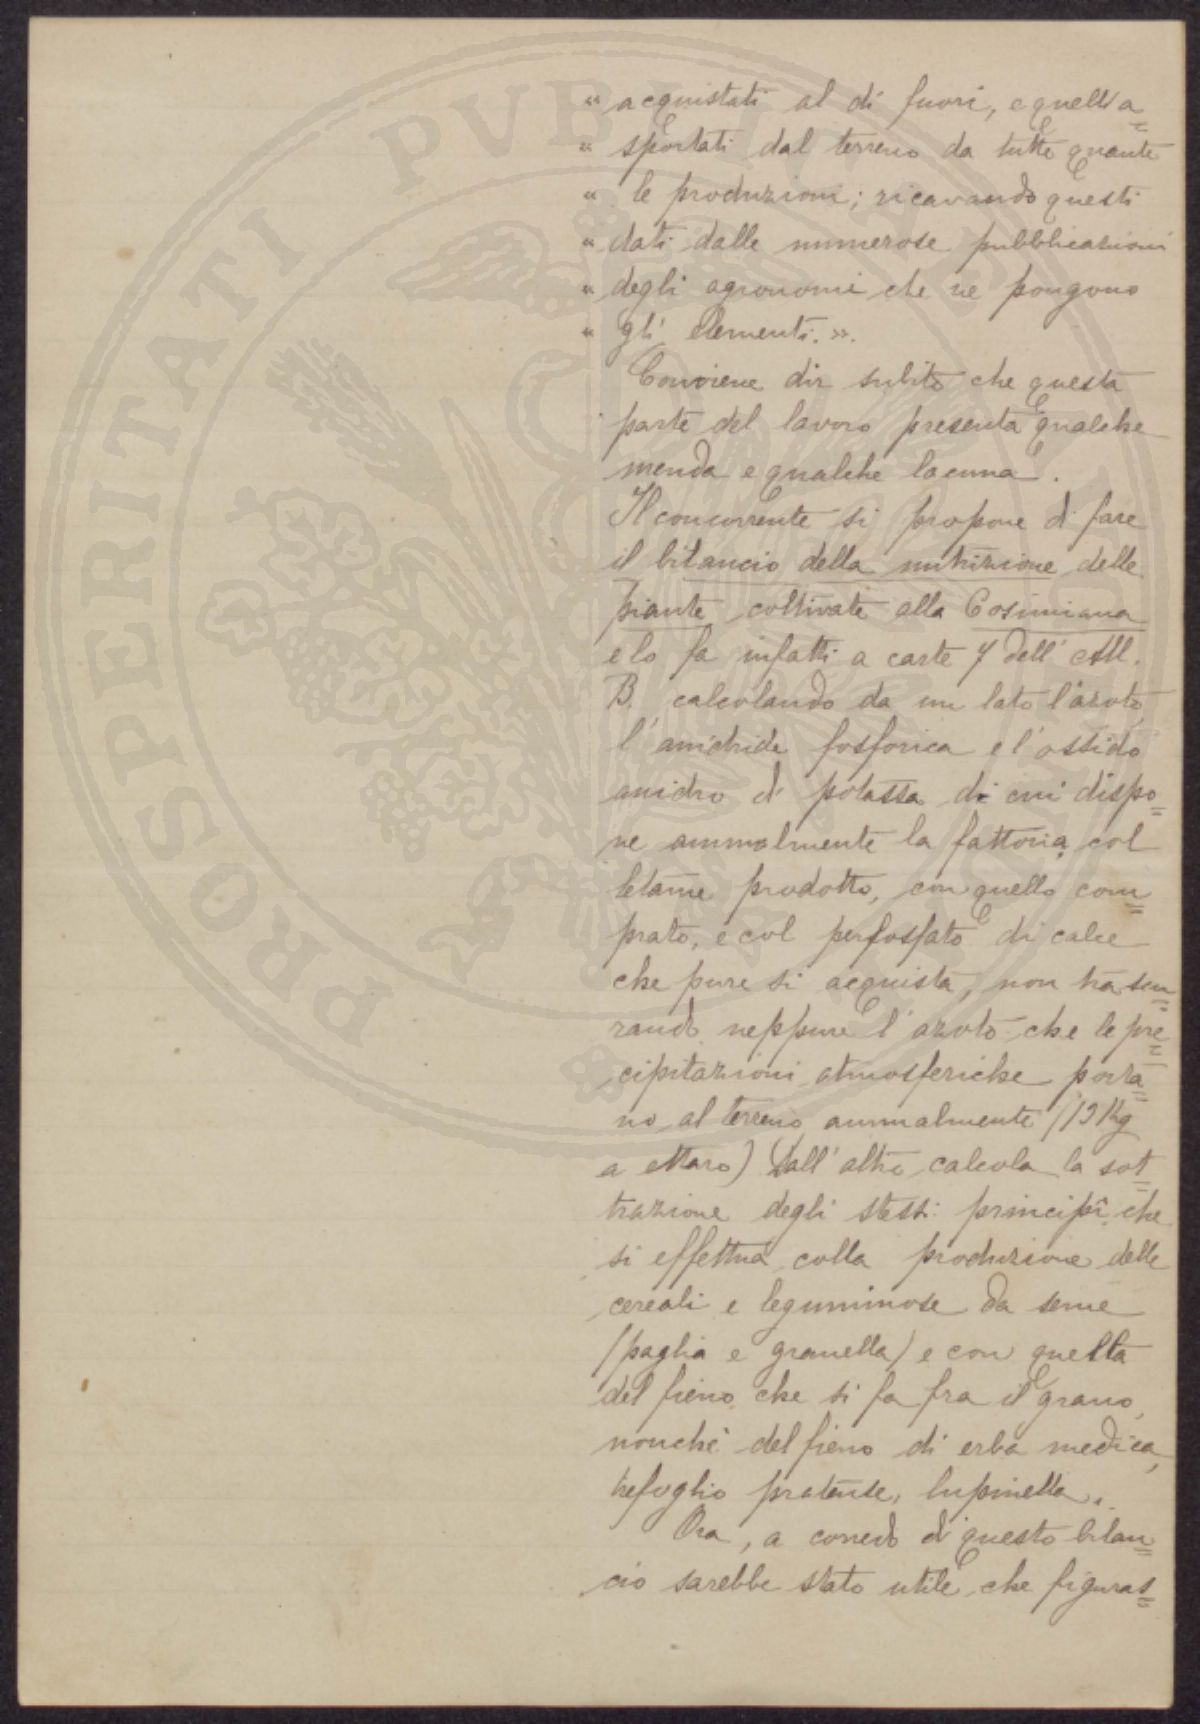 “ acquistati al di fuori, e quelli a=
“ sportati dal terreno da tutte quante
“ le produzioni; ricavando questi
“ dati dalle numerose pubblicazioni
“ degli agronomi che ne pongono
“ gli elementi.».
Conviene dir subito che questa
parte del lavoro presenta qualche
menda e qualche lacuna.
Il concorrente si propone di fare
il bilancio della nutrizione delle
piante coltivate alla Cosimiana
e lo fa infatti a carte 7 dell'All.
B. calcolando da un lato l'azoto,
l'anidride fosforica e l'ossido
anidro di potassa di cui dispo=
ne annualmente la fattoria col
letame prodotto, con quello com=
prato, e col perfosfato di calce
che pure si acquista, non trascu=
rando neppure l'azoto che le pre=
cipitazioni atmosferiche porta=
no al terreno annualmente (13 Kg
a ettaro) Dall'altro calcola la sot=
trazione degli stessi principî che
si effettua colla produzione delle
cereali e leguminose da seme
(paglia e granella) e con quella
del fieno che si fa fra il grano,
nonchè del fieno di erba medica,
trefoglio pratense, lupinella.
Ora, a corredo di questo bilan=
cio sarebbe stato utile che figuras=
PROSPERITATI PVBLICAE